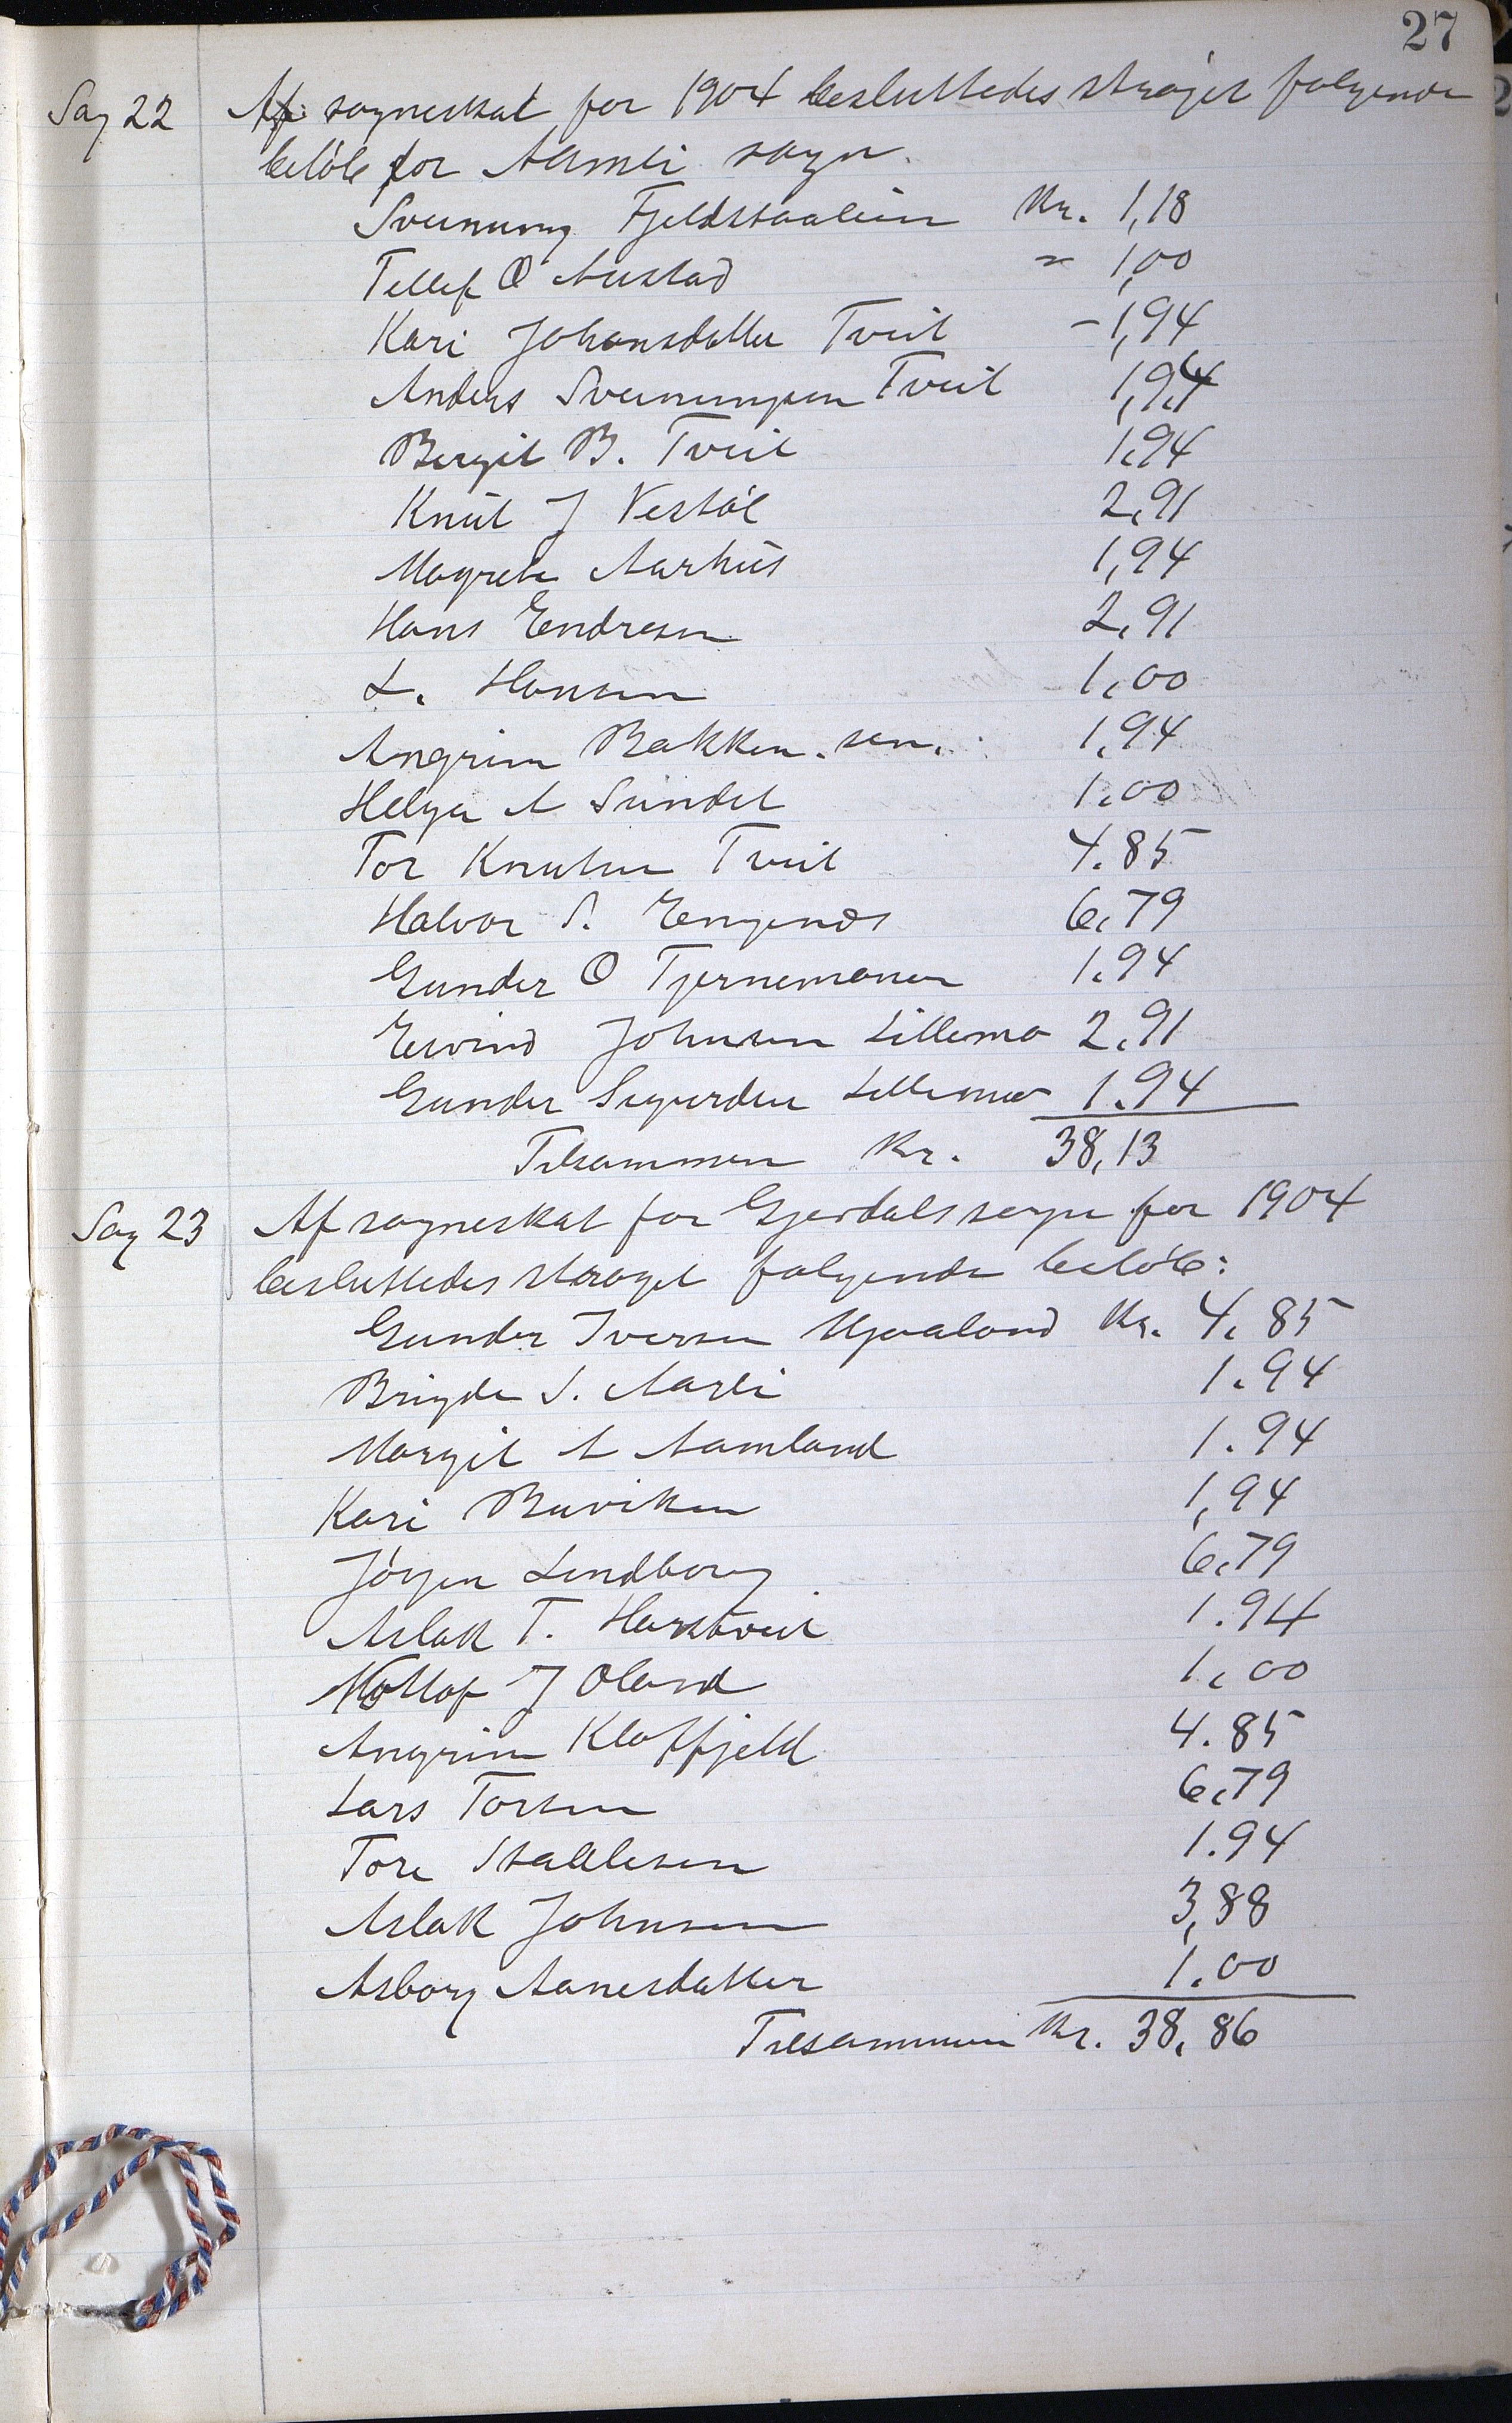 27
Sag 22 Af sogneskat for 1904 besluttedes strøget følgende
beløb for Aamli sogn.
Sveinung Fjeldstaalein Kr. 1,18
Tellef O Austad " 1,00
Kari Johansdatter Tveit - 1,94
Anders Sveinungsen Tveit 1,94
Bergit B. Tveit 1,94
Knut J Vestøl 2,91
Magrete Aarhus 1,94
Hans Endresen 2,91
L. Hansen 1,00
Angrim Bakken. sen. 1,94
Helga A Sundet 1,00
Tor Knutsen Tveit 4.85
Halvor S. Engenes 6,79
Gunder O Tjernemonen 1.94
Eivind Johnsen Lillemo 2.91
Gunder Sigurdsen Lillemo 1.94
Tilsammen Kr. 38,13
Sag 23 Af sogneskat for Gjøvdals sogn for 1904
besluttedes strøget følgende beløb:
Gunder Iversen Mjaaland Kr. 4,85
Brigde S. Aasli 1.94
Margit A Aamland 1.94
Kari Buviken 1,94
Jörgen Lindborg 6,79
Aslak T. Harstveit 1.94
Nottof J Oland 1,00
Angrim Kloffjeld 4.85
Lars Torsen 6,79
Tore Stallesen 1.94
Aslak Johnsen 3,88
Asborg Aanesdatter 1.00
Tilsammen Kr. 38,86